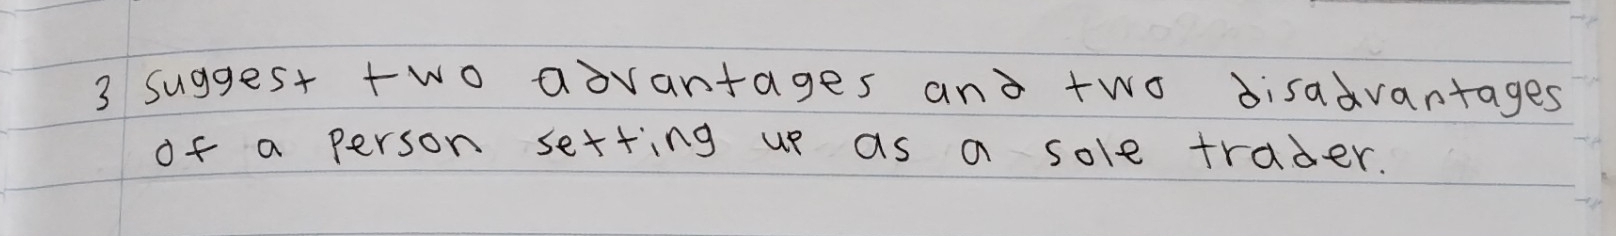 3 suggest two advantages and two disadvantages
of a person setting up as a sole trader.